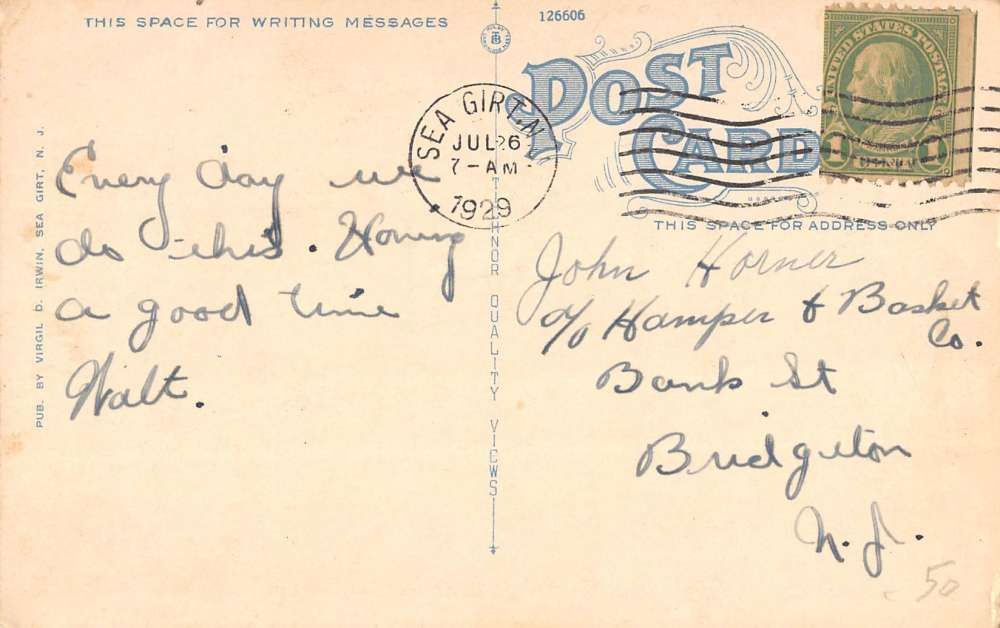 THIS SPACE FOR WRITING MESSAGES
126606
POST CARD
UNITED STATES POSTAGE
1 1
SEA GIRT, N
JUL 26
7-AM
1929
THIS SPACE FOR ADDRESS ONLY
PUB. BY VIRGIL D. IRWIN, SEA GIRT, N. J.
Every day we
do this. Having
a good time
Walt.
TICHNOR QUALITY VIEWS
John Horner
c/o Hamper & Basket
Co.
Bank St
Bridgeton
N.J.
50